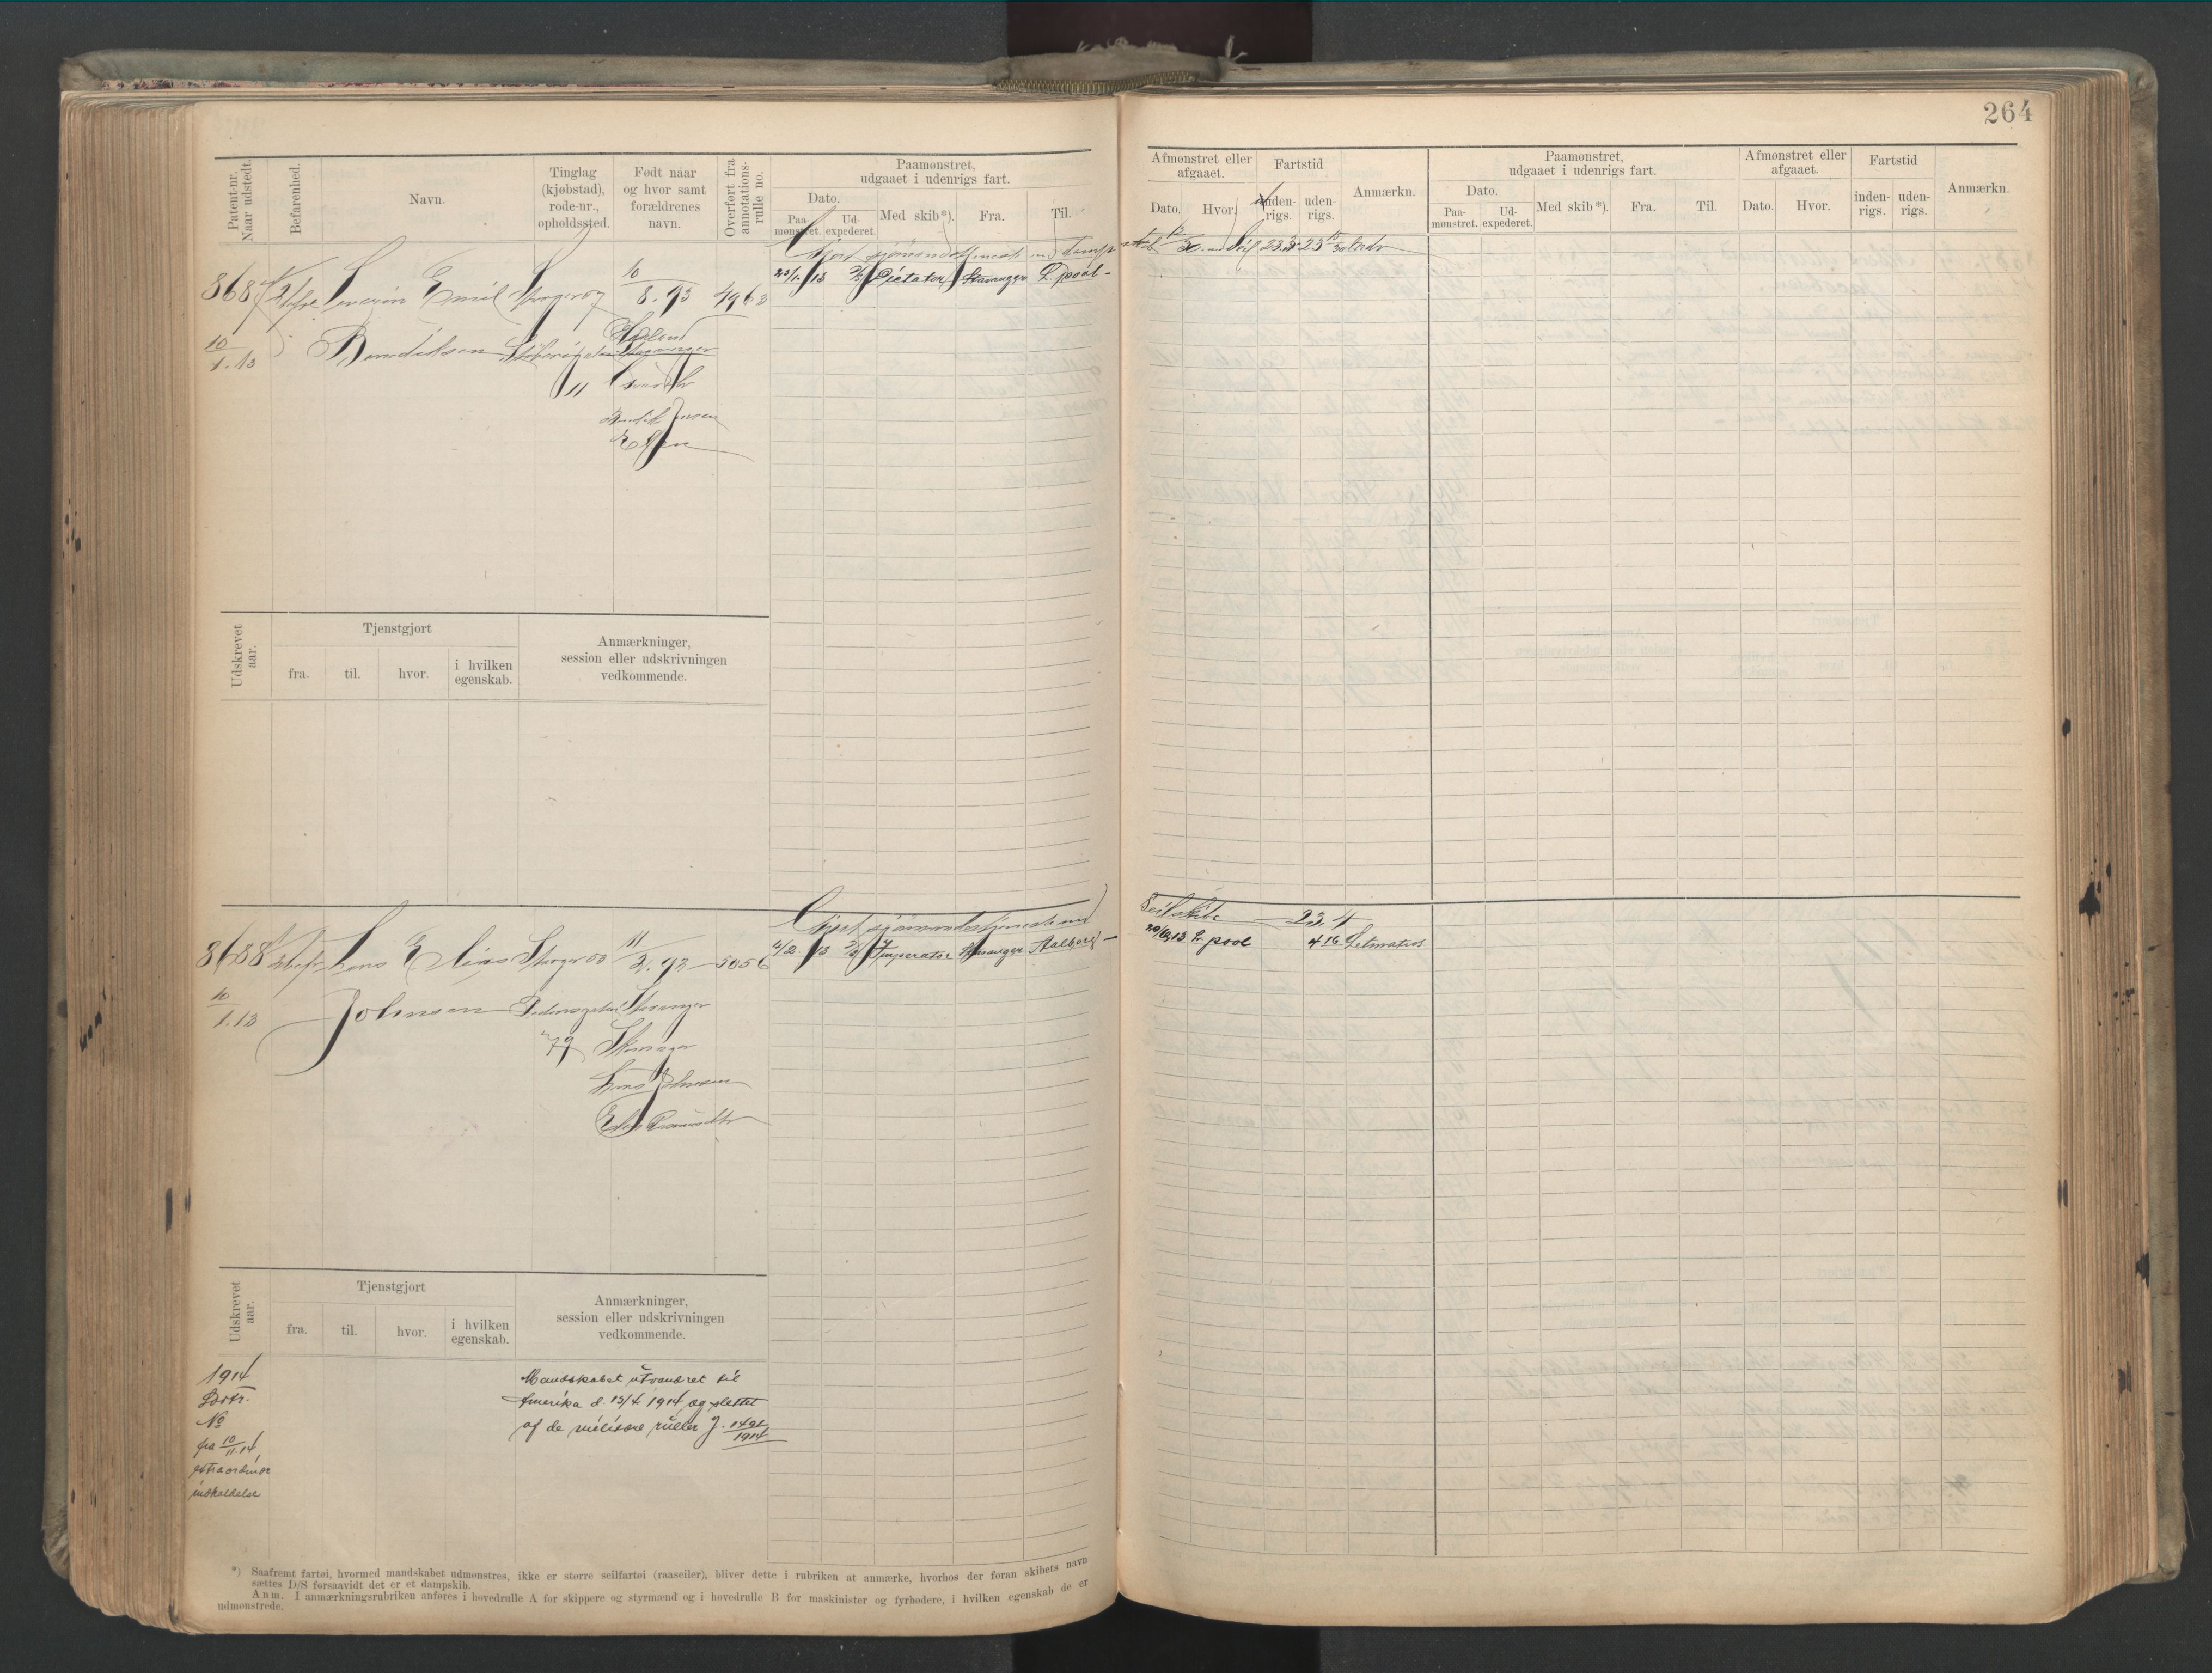 264
Patent-nr. Naar udstedt.
Befarenhed.
Navn.
Tinglag (kjøbstad), rode-nr., opholdssted.
Født naar og hvor samt forældrenes navn.
Overført fra annotations-rulle no.
Paamønstret, udgaaet i udenrigs fart.
Dato.
Paa-mønstret.
Ud-expederet.
Med skib*).
Fra.
Til.
Afmønstret eller afgaaet.
Dato.
Hvor.
Fartstid
inden-rigs.
uden-rigs.
Anmærkn.
Paamønstret, udgaaet i udenrigs fart.
Dato.
Paa-mønstret.
Ud-expederet.
Med skib*).
Fra.
Til.
Afmønstret eller afgaaet.
Dato.
Hvor.
Fartstid
inden-rigs.
uden-rigs.
Anmærkn.
8687 Severin Emil 10/8.93 4963
Dictator Stavanger L.pool -
10/1.13 Bendiksen
11
Udskrevet aar.
Tjenstgjort
fra.
til.
hvor.
i hvilken egenskab.
Anmærkninger, session eller udskrivningen vedkommende.
Seilskibe 23.4
8688 11/2.93 5056
Imperator Stavanger Aalborg -
L.pool 4 16 Letmatros
10/1.13 Johnsen Pedersgaden Stavanger
79 Stavanger
Udskrevet aar.
Tjenstgjort
fra.
til.
hvor.
i hvilken egenskab.
Anmærkninger, session eller udskrivningen vedkommende.
1914
No
fra 10/11.14
extraordinær
indkaldelse
Mandskabet utvandret til
Amerika d. 13/4 1914 og slettet
af de militære ruller J. 1491/1914
*) Saafremt fartøi, hvormed mandskabet udmønstres, ikke er større seilfartøi (raaseiler), bliver dette i rubriken at anmærke, hvorhos der foran skibets navn
sættes D/S forsaavidt det er et dampskib.
Anm. I anmærkningsrubriken anføres i hovedrulle A for skippere og styrmænd og i hovedrulle B for maskinister og fyrbødere, i hvilken egenskab de er
udmønstrede.